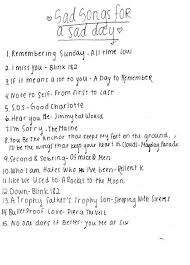 Sad Songs for
a sad day
1. Remembering Sunday - All time low
2. I miss you - Blink 182
3. If it means a lot to you - A Day to Remember
4. Note to Self - From First to Last
5. S.O.S - Good Charlotte
6. Hear you Me - Jimmy Eat World
7. I'm Sorry - The Maine
8. You Be The Anchor that keeps My feet on the ground,
I'll be the wings that keep your heart in Clouds - Mayday Parade
9. Second & Sebring - Of Mice & Men
10. Who I am Hates Who I've been - Relient K
11. Like We Used To - A Rocket to the Moon
12. Down - Blink 182
13. A Trophy Father's Trophy Son - Sleeping With Sirens
14. Bulletproof Love - Pierce the Veil
15. No one does it Better - You Me at Six